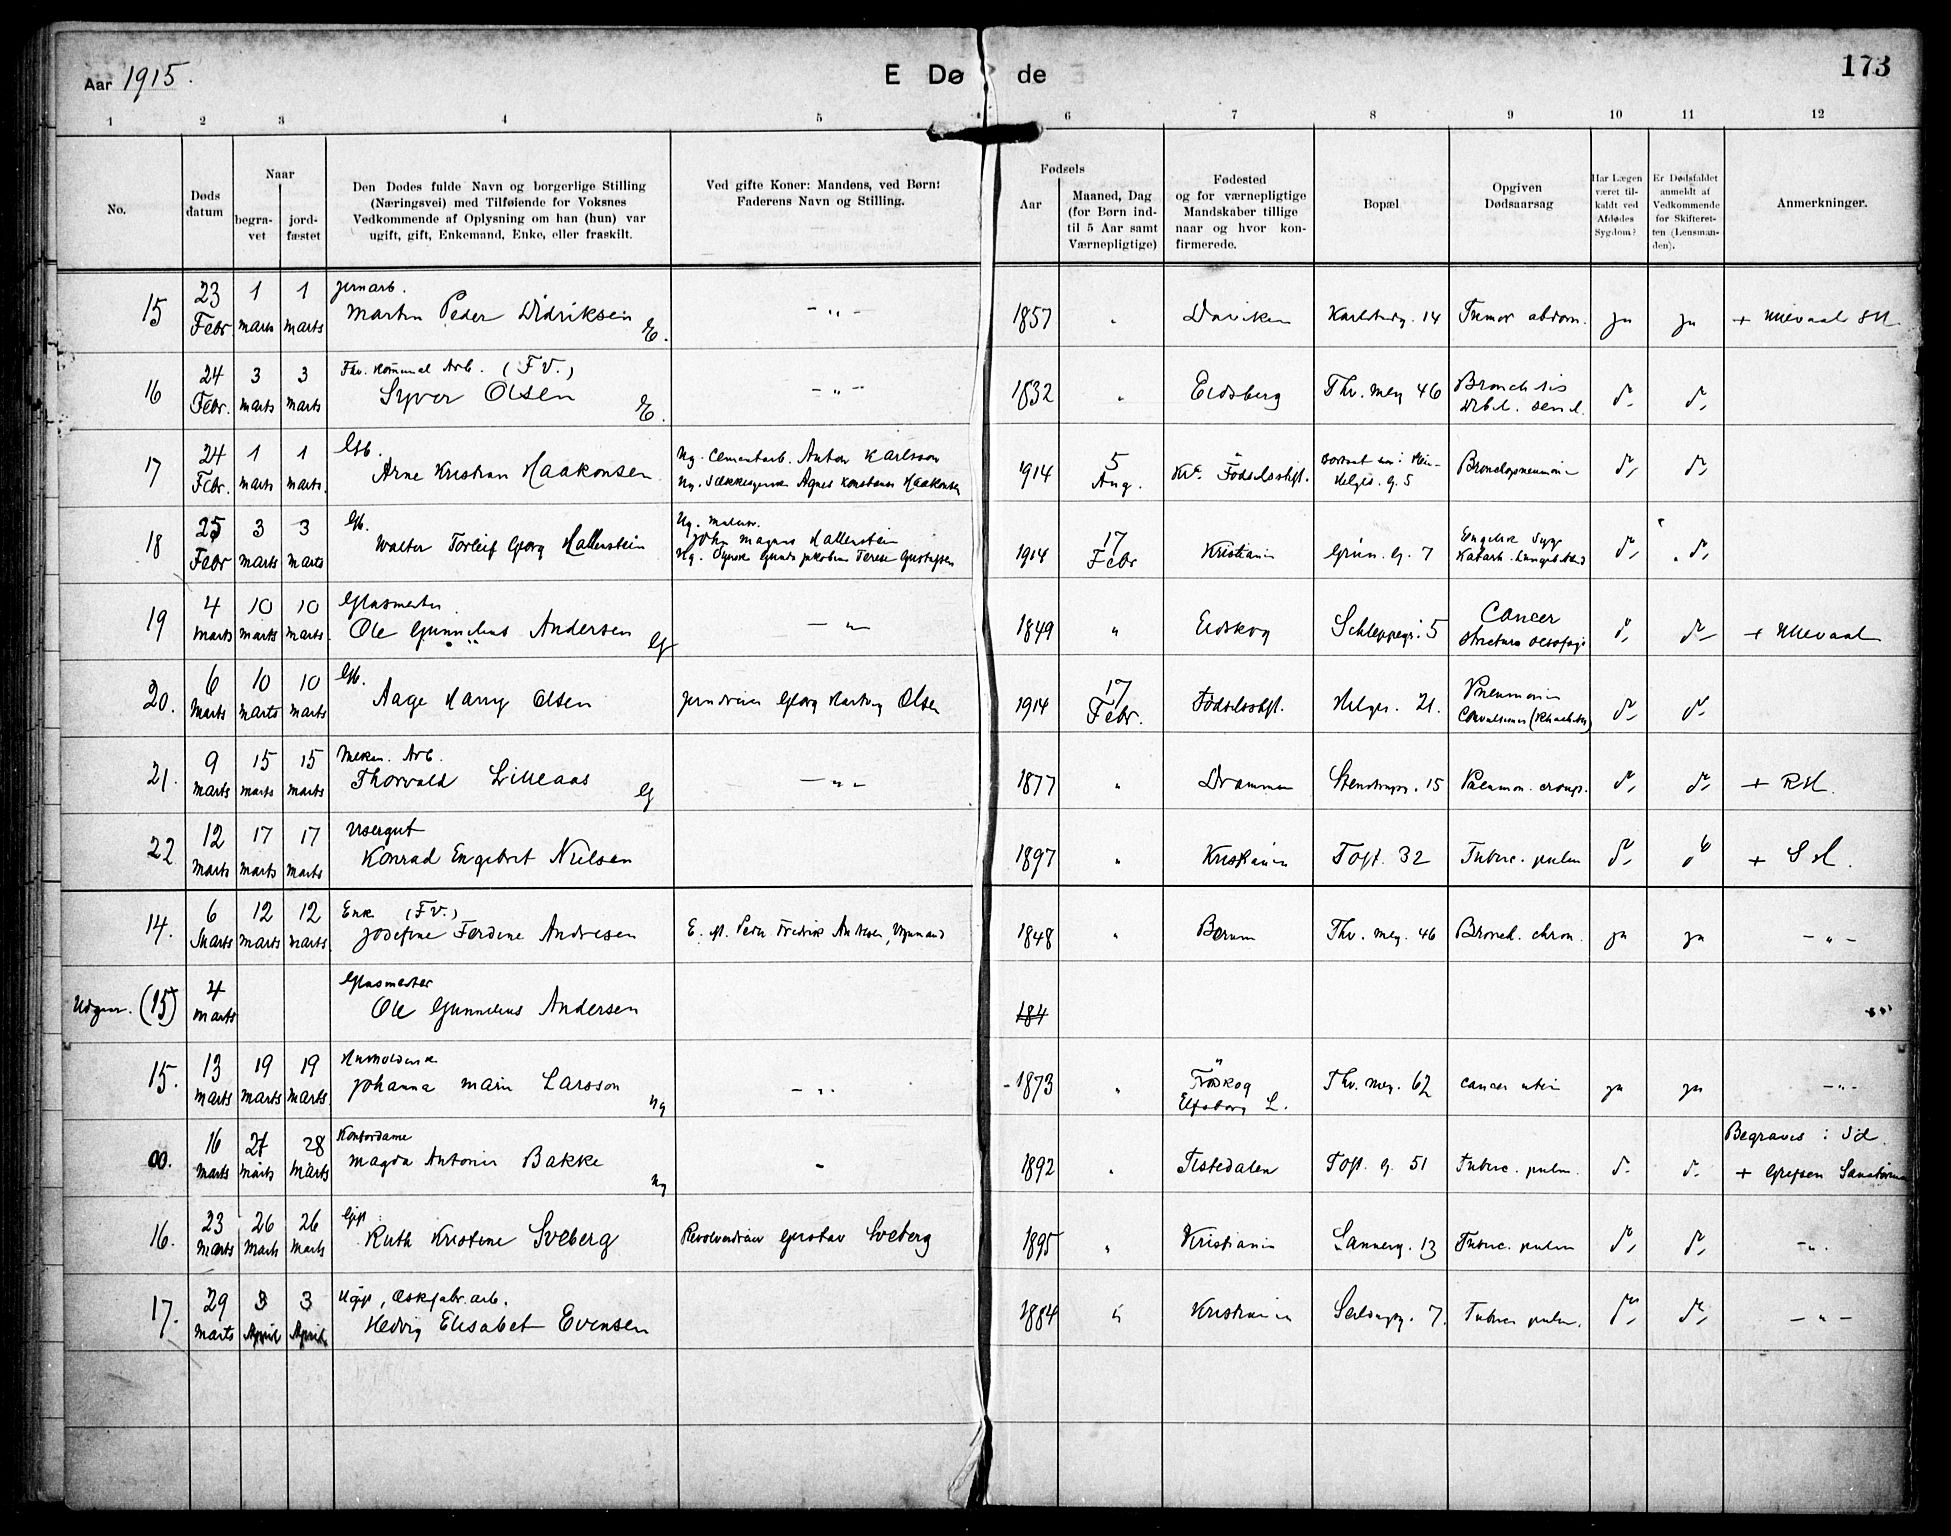 Aar 1915.
E Dø de
173
1 2 3 4 5 6 7 8 9 10 11 12
No.
Døds datum
Naar
begra-vet
jord-fæstet
Den Dødes fulde Navn og borgerlige Stilling
(Næringsvei) med Tilføiende for Voksnes
Vedkommende af Oplysning om han (hun) var
ugift, gift, Enkemand, Enke, eller fraskilt.
Ved gifte Koner: Mandens, ved Børn:
Faderens Navn og Stilling.
Fødsels
Aar
Maaned, Dag
(for Børn ind-
til 5 Aar samt
Værnepligtige)
Fødested
og for værnepligtige
Mandskaber tillige
naar og hvor kon-
firmerede.
Bopæl
Opgiven
Dødsaarsag
Har Lægen
været til-
kaldt ved
Afdødes
Sygdom?
Er Dødsfaldet
anmeldt af
Vedkommende
for Skifteret-
ten (Lensman-
den).
Anmerkninger.
15 23 Febr. 1 marts 1 marts Jernarb. Martin Peder Didriksen E. – „ – 1857 „ Daviken 14 Tumor abdom. ja ja + Ullevaal SH.
16 24 Febr. 3 marts 3 marts Fhv. Kommunal Arb. (F.V.) Syver Olsen E. – „ – 1832 „ Eidsberg Thv. mey 46 Bronchitis Debil. senil. do do
17 24 Febr. 1 marts 1 marts. Gb. Arne Kristian Haakonsen Ug. Cementarb. Anton Karlsson Ug. Agnes Konstanse Haakonsen 1914 5 Aug. Kv. Fødselsstift. Helges. g. 5 Bronchopneumonie do do
18 25 Febr 3 marts 3 marts Gb. Walter Torleif Georg Hallenstein Ug. Maler John Magnus Hallenstein Ug. Terese Gustafsen 1914 17 Febr Kristiania Grün. g. 7 Engelsk Syg Katarh. Lungebetænd do do
19 4 marts 10 marts 10 marts. Glasmester Ole Gunnelius Andersen G – „ – 1849 „ Eidskog Schleppegr. 5 Cancer Strictura oesofagi do do + Ullevaal
20. 6 Marts 10 marts 10 marts Gb. Aage Harry Olsen Jerndreier Georg Hartvig Olsen 1914 17 Febr. Fødselsstift. Helges. 21. Pneumonia Convulsiones (Rhachitis) do do
21. 9 marts 15 marts 15 marts Mekan. Arb. Thorvald Lilleaas G – „ – 1877 „ Drammen Stenstrupg. 15 Pneumon. croup. do do + RH.
22 12 marts 17 marts 17 marts Visergut Konrad Engebret Nielsen 1897 „ Kristiania Toft. 32 Tuberc. pulm do do + S H.
14. 6 Marts 12 marts 12 marts Enke (F.V.) Josefine Fordine Andresen E. eft. Peder Fredrik Andresen, Vognmand 1848 „ Berum Thv. mey. 46 Bronch. chron. ja ja – „ –
Udgaar. (15) 4 marts Glasmester Ole Gunnelius Andersen 184
15. 13 marts 19 marts 19 marts. Husholderske Johanna Marie Larsson Ug – „ – 1873 „ Fröskog Elfsborg L. Thv. mey. 62 cancer uteri ja ja – „ –
00. 16 marts 27 marts 28 marts Kontordame Magda Antonie Bakke Ug „ 1892 „ Tistedalen Toft. g. 51 Tuberc. pulm. do do Begraves i Sd. + Grefsen Sanatorium
16. 23 marts 26 marts 26 marts Gift Ruth Kristine Sveberg Revolverdreier Gustav Sveberg 1895 „ Kristiania Sannerg. 13 Tuberc. pulm do do – „ –
17. 29 marts 3 April 3 April Ugift, Æskfabr. arb. Hedvig Elisabet Evensen 1884 „ Kristiania Seilduksg. 7. Tuberc pulm. do do – „ –